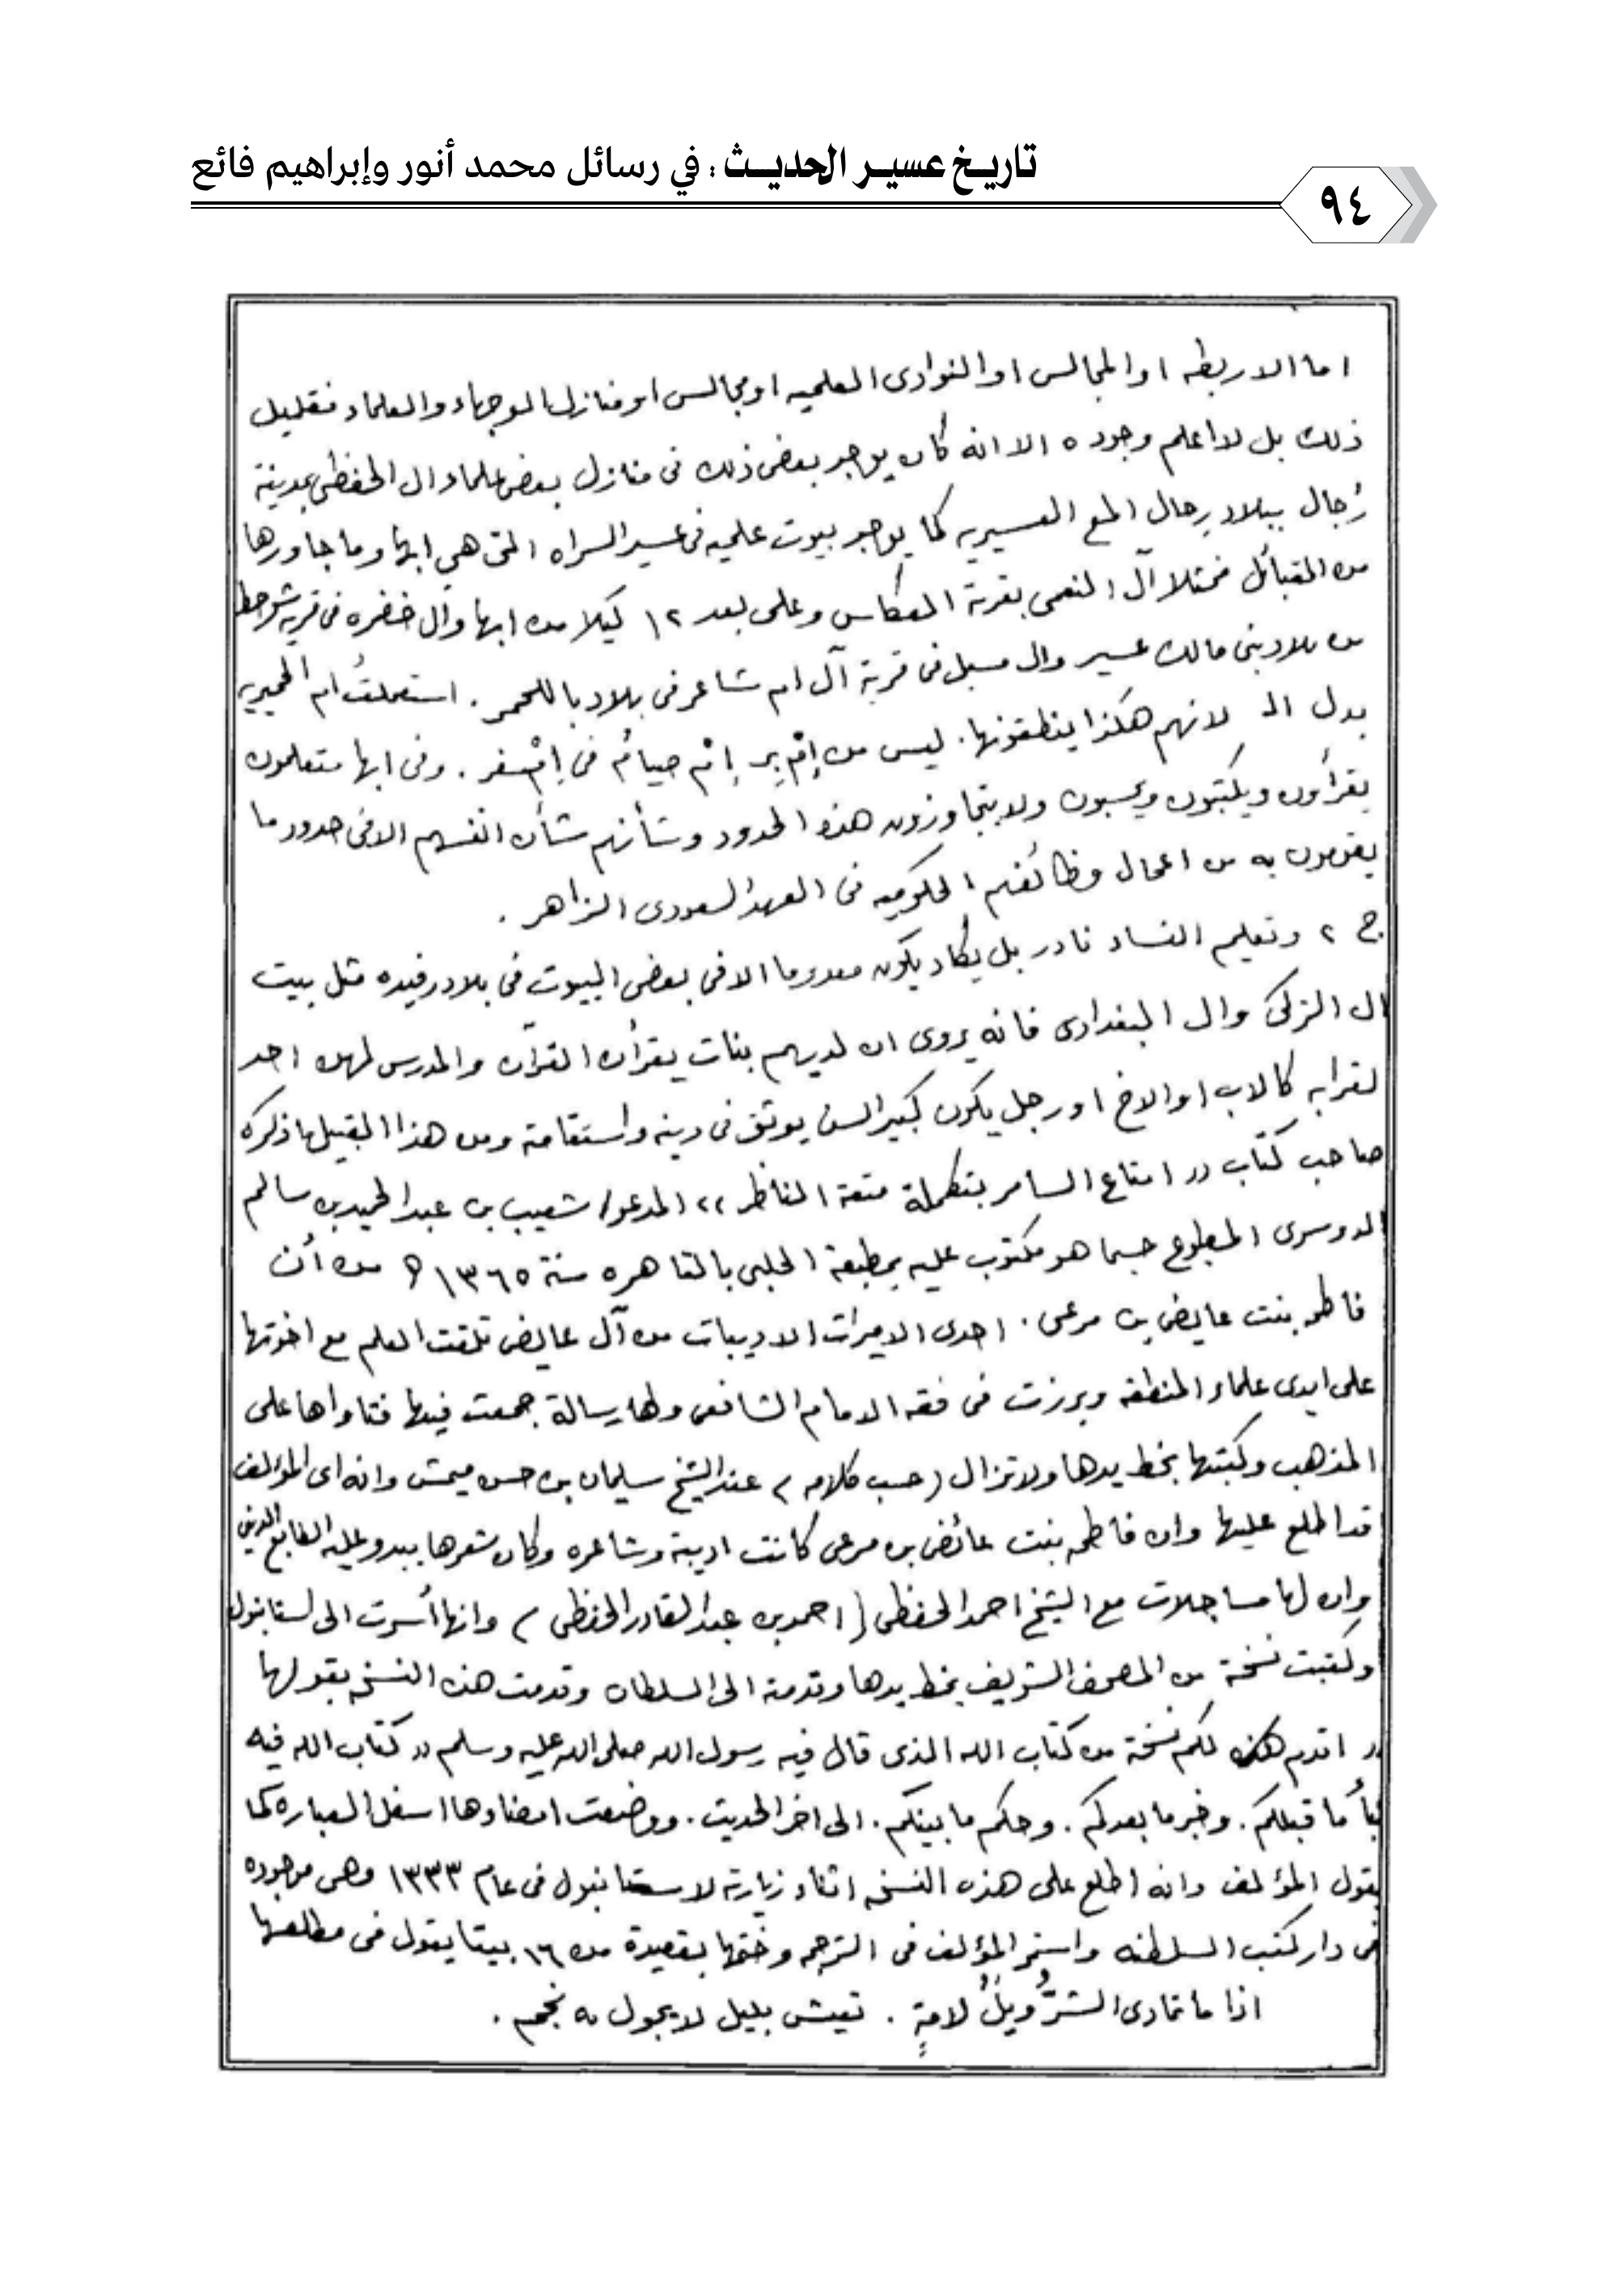 تاريخ عسير الحديث : في رسائل محمد أنور وإبراهيم فائع
٩٤
اما الاربطه او المجالس او النوادى العلميه او مجالس او منازل الوجهاء والعلماء فقليل
ذلك بل لا اعلم وجوده الا انه كان يوجد بعض ذلك فى منازل بعض علماء ال الحفظى بمدينة
رُجال ببلاد رجال المع العسيريه كما يوجد بيوت علميه فى عسير السراه التى هي ابها وما جاورها
من القبائل فمثلا آل النعمى بقرية العكاس وعلى بعد ١٢ كيلا من ابها وآل خضره فى قرية شوحط
من بلاد بنى مالك عسير وال مسبل فى قرية آل ام شاعر فى بلاد باللحمر . استعملتُ ام الحميريه
بدل الـ لانهم هكذا ينطقونها . ليس من إمْ بِر إمْ صيامُ فى إمْسفر . وفى ابها متعلمون
يقرأون ويكتبون ويحسبون ولا يتجاوزون هذه الحدود وشأنهم شأن انفسهم الا فى حدود ما
يقومون به من اعمال وظائفهم الحكوميه فى العهد السعودى الزاهر .
ج ٢ وتعليم النساء نادر بل يكاد يكون معدوما الا فى بعض البيوت فى بلاد رفيده مثل بيت
ال الزلكى وال البغدادى فانه يروى ان لديهم بنات يقرأن القرآن والمدرس لهن احد
لقرابه كالاب او الاخ او رجل يكون كبير السن يوثق فى دينه واستقامته ومن هذا القبيل ما ذكره
صاحب كتاب (( امتاع السامر بتكملة متعة الناظر )) المدعو / شعيب بن عبد الحميد بن سالم
الدوسرى المطبوع حسبما هو مكتوب عليه بمطبعة الحلبى بالقاهره سنة ١٣٦٥ هـ من أن
فاطمه بنت عايض بن مرعى . احدى الاميرات الاديبات من آل عايض تلقت العلم مع اخوتها
على ايدى علماء المنطقه وبرزت فى فقه الامام الشافعى ولها رسالة جمعت فيها فتاواها على
المذهب وكتبتها بخط يدها ولا تزال ( حسب كلامه ) عند الشيخ سليمان بن حسن ميمش وانه اى المؤلف
قد اطلع عليها وان فاطمه بنت عائض بن مرعى كانت اديبة وشاعره وكان شعرها يبدو عليه الطابع الدينى
وان لها مساجلات مع الشيخ احمد الحفظى ( احمد بن عبد القادر الحفظى ) وانها أُسرت الى استانبول
وكتبت نسخة من المصحف الشريف بخط يدها وقدمته الى السلطان وقدمت هذه النسخه بقولها
(( اقدم لكم نسخة من كتاب الله الذى قال فيه رسول الله صلى الله عليه وسلم (( كتاب الله فيه
نبأُ ما قبلكم . وخبر ما بعدكم . وحكم ما بينكم . الى اخر الحديث . ووضعت امضاءها اسفل العباره كما
يقول المؤلف وانه اطلع على هذه النسخه اثناء زيارته لاستانبول فى عام ١٣٣٣ وهى موجوده
فى دار كتب السلطنه واستمر المؤلف فى الترجمه وختمها بقصيدة من ١٦ بيتا يقول فى مطلعها
اذا ما تمادى الشرُّ ويلٌ لامةٍ . تعيش بليل لا يجول به نجم .